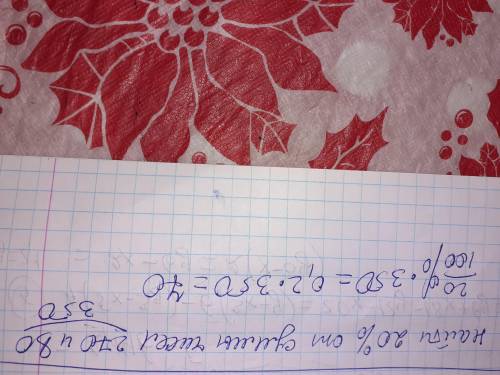 Найти 20% от суммы чисел 270 и 80
350
20%/100% · 350 = 0,2 · 350 = 70